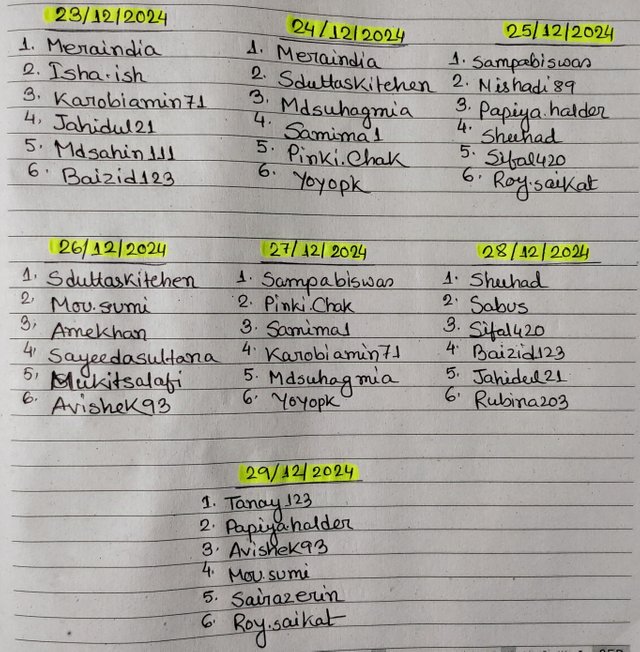 23/12/2024
1. Meraindia
2. Isha.ish
3. Karobiamin71
4. Jahidul21
5. Mdsahin111
6. Baizid123
24/12/2024
1. Meraindia
2. Sduttaskitchen
3. Mdsuhagmia
4. Samima1
5. Pinki.Chak
6. Yoyopk
25/12/2024
1. Sampabiswas
2. Mishadi89
3. Papiya.halder
4. Sheehad
5. Sifal420
6. Roy.saikat
26/12/2024
1. Sduttaskitchen
2. Mou.sumi
3. Amekhan
4. Sayeedasultana
5. Mukitsalafi
6. Avishek93
27/12/2024
1. Sampabiswas
2. Pinki.Chak
3. Samima1
4. Karobiamin71
5. Mdsuhagmia
6. Yoyopk
28/12/2024
1. Sheehad
2. Sabus
3. Sifal420
4. Baizid123
5. Jahidul21
6. Rubina203
29/12/2024
1. Tanay123
2. Papiya.halder
3. Avishek93
4. Mou.sumi
5. Sairazerin
6. Roy.saikat